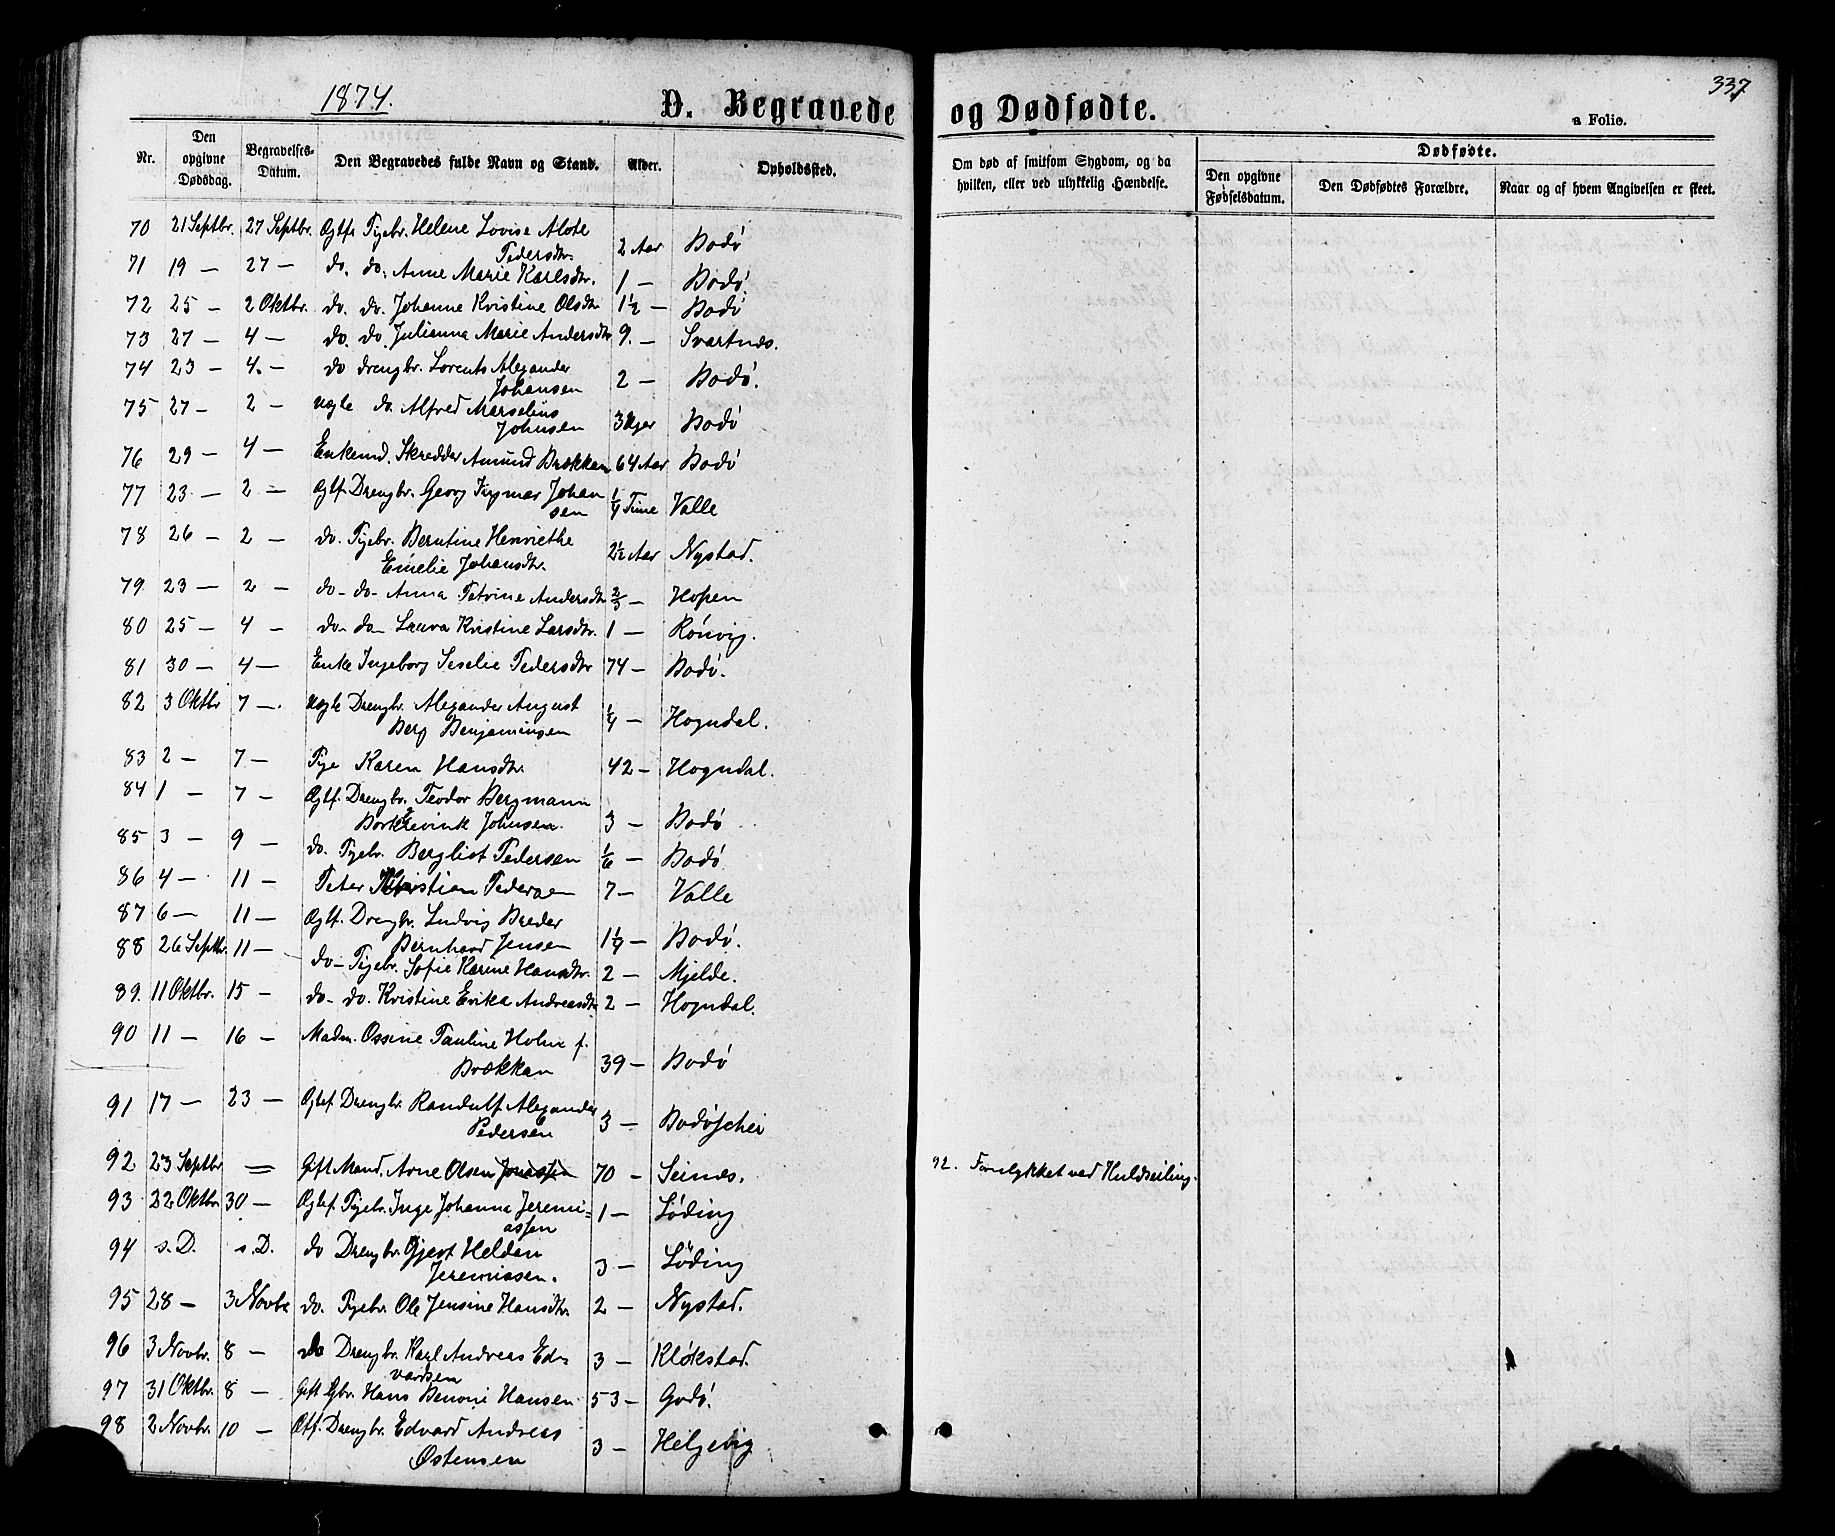 1874.
D. Begravede og Dødfødte.
337
a Folio.
Nr.
Den opgivne Dødsdag.
Begravelses-Datum.
Den Begravedes fulde Navn og Stand.
Alder.
Opholdssted.
Om død af smitsom Sygdom, og da hvilken, eller ved ulykkelig Hændelse.
Dødfødte.
Den opgivne Fødselsdatum.
Den Dødfødtes Forældre.
Naar og af hvem Angivelsen er skeet.
70 21 Septbr. 27 Septbr. Ægtf Pigebr. Helene Lovise Alote
Pedersdtr. 2 Aar Bodø
71 19 — 27 — do. do. Anne Marie Karlsdtr. 1 — Bodø
72 25 — 2 Oktbr. do. do. Johanne Kristine Olsdtr 1½ — Bodø
73 27 — 4 — do. do. Julianna Marie Andersdtr 9. — Svartnes.
74 23 — 4. — do drengbr. Lorents Alexander
Johansen 2 — Bodø.
75 27 — 2 — uægte do. Alfred Marselius
Johnsen 3 Uger Bodø
76 29 — 4 — Enkemd. Skredder Amund Brækkan 64 Aar Bodø
77 23 — 2 — Ægtf. Drengbr. Georg Ingmar Johan
sen ¼ Time Valle
78 26 — 2 — do. Pigebr. Berntine Henriethe
Emelie Johansdtr. 2½ Aar Nystad.
79 23 — 2 — do — do — Anna Petrine Andersdtr ⅔ — Hopen
80 25 — 4 — do — do — Laura Kristine Larsdtr. 1 — Rönvig.
81 30 — 4 — Enke Ingeborg Seselie Pedersdtr 74 — Bodø.
82 3 Oktbr 7 — . uægte Drengbr. Alexander August
Berg Benjaminsen ¼ — Hogndal.
83 2 — 7 — Pige Karen Hansdtr. 42 — Hogndal.
84 1 — 7 — Ægtf. Drengbr. Teodor Bergmann
Johnsen. 3 — Bodø
85 3 — 9 — do. Pigebr. Bergliot Pedersen ⅙ — Bodø
86 4 — 11 — Peter Kristian Pedersen 7 — Valle
87 6 — 11 — Ægtf. Drengbr. Ludvig Breder
Bernhard Jensen 1¼ — Bodø.
88 26 Septbr. 11 — do — Pigebr. Sofie Karine Hansdtr. 2 — Mjelde.
89. 11 Oktbr. 15 — do — do. Kristine Erika Andreasdtr 2 — Hogndal.
90 11 — 16 — Madm. Ossine Pauline Holm f.
Brækkan 39 — Bodø
91 17 — 23 — Ægtef Drengbr. Randulf Alexander
Pedersen 3 — Bodøscher
92 23 Septbr — Gift Mand. Arne Olsen 70 — Seines.
92. Forulykket ved Kuldseiling.
93 22 Oktbr. 30 — Ægtef. Pigebr. Inge Johanna Jeremi=
assen 1 — Løding
94 s. D. s. D. do Drengbr. Gjert Heldan
Jeremiasen. 3 — Løding
95 28 — 3 Novbr do. Pigebr. Ole Jensine Hansdtr. 2 — Nystad.
96 3 Novbr. 8 — do Drengbr. Karl Andreas Ed=
vardsen 3 — Kløkstad.
97 31 Oktbr. 8 — Gift Gbr. Hans Benoni Hansen 53 — Godø.
98 2 Novbr. 10 — Ætf. Drengbr. Edvard Andreas
Østensen 3 — Helgevig